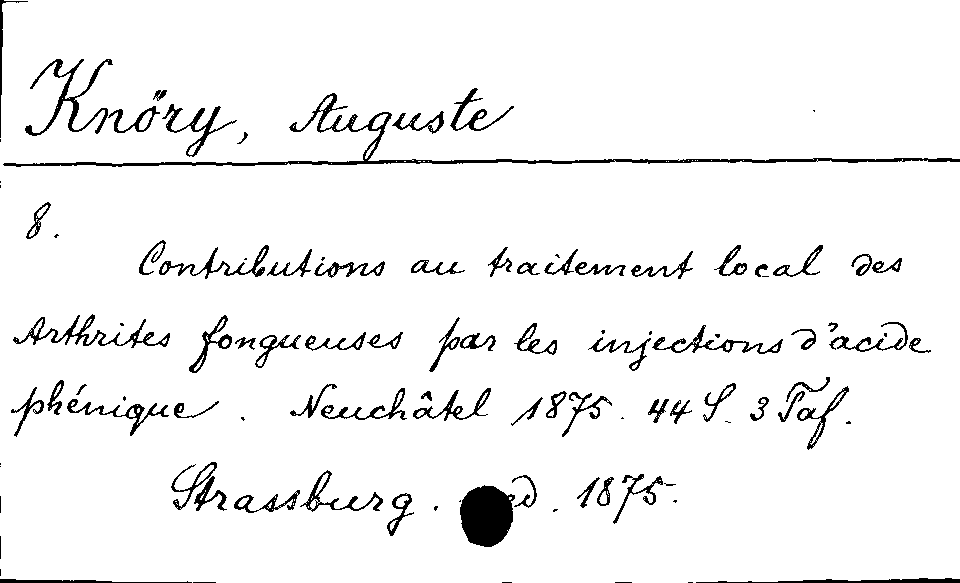 Knöry, Auguste
8.
Contributions au traitement local des
Arthrites fongueuses par les injections d'acide
phénique. Neuchâtel 1875. 44 S. 3 Taf.
Strassburg. 1875.